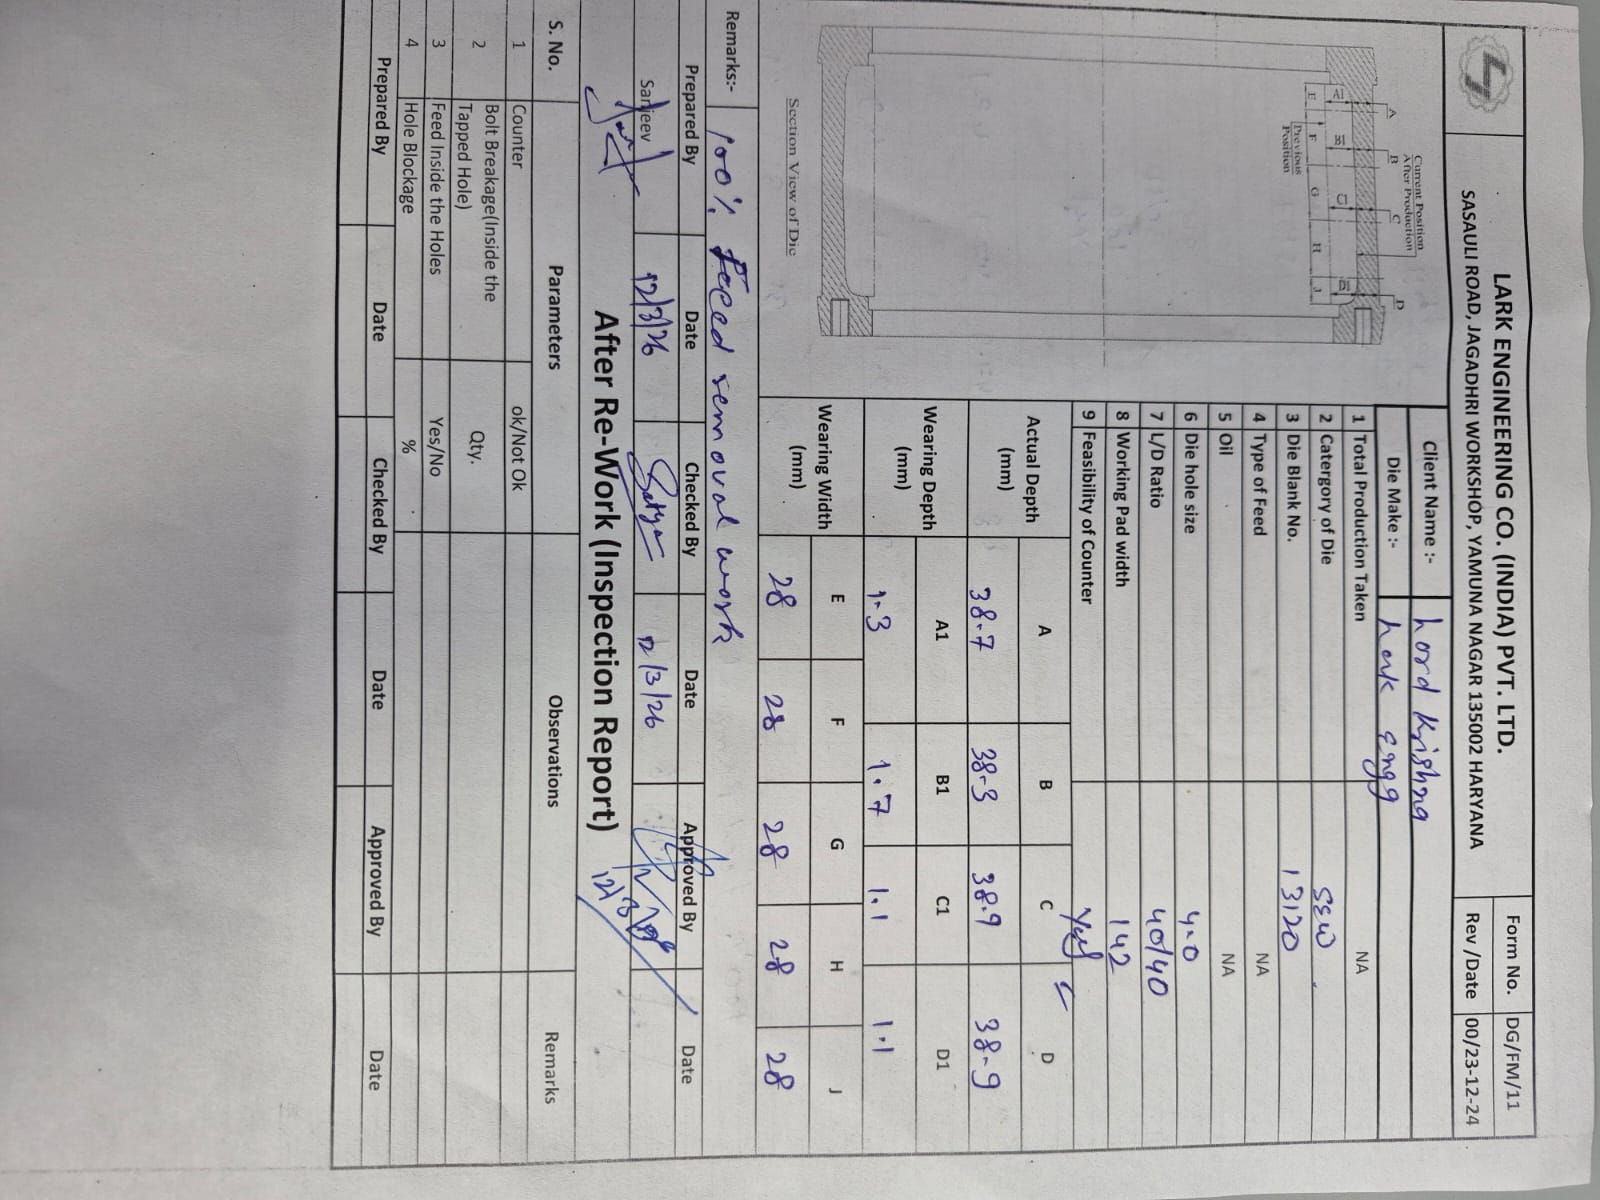 LARK ENGINEERING CO. (INDIA) PVT. LTD.
SASAULI ROAD, JAGADHRI WORKSHOP, YAMUNA NAGAR 135002 HARYANA
Form No. DG/FM/11
Rev /Date 00/23-12-24
Current Position
After Production
A B C D
A1 B1 C1 D1
E F G H J
Previous
Position
Section View of Die
Client Name :- Lord Krishna
Die Make :- Lark Engg
1 Total Production Taken NA
2 Catergory of Die SEW
3 Die Blank No. 13120
4 Type of Feed NA
5 Oil NA
6 Die hole size 4.0
7 L/D Ratio 40/40
8 Working Pad width 142
9 Feasibility of Counter Yes
Actual Depth (mm) A B C D
38.7 38.3 38.9 38.9
Wearing Depth (mm) A1 B1 C1 D1
1.3 1.7 1.1 1.1
Wearing Width (mm) E F G H J
28 28 28 28 28
Remarks:- 100% Feed removal work
Prepared By Date Checked By Date Approved By Date
Sanjeev 12/3/26 Satya 12/3/26
12/3/26
After Re-Work (Inspection Report)
S. No. Parameters Observations Remarks
1 Counter ok/Not Ok
2 Bolt Breakage(Inside the Tapped Hole) Qty.
3 Feed Inside the Holes Yes/No
4 Hole Blockage %
Prepared By Date Checked By Date Approved By Date